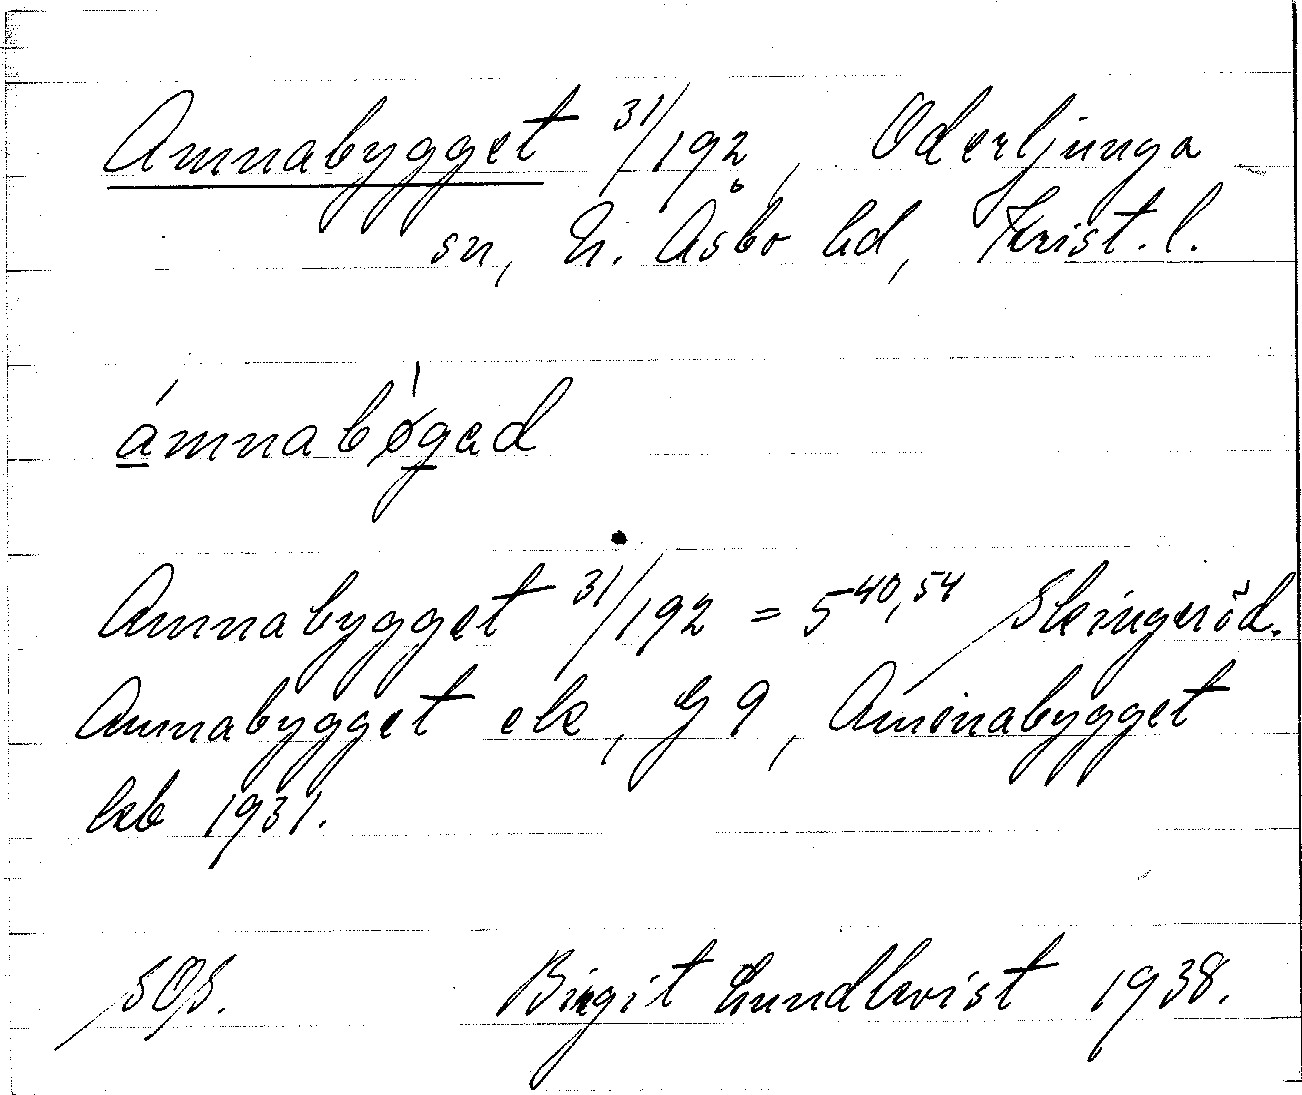 Amnabygget 31/192, Oderljunga
sn, N. Åsbo hd, Krist. l.
ámnabǿgad
Amnabygget 31/192 = 5 40,54 Skingeröd.
Amnabygget ek, G 9, Amenabygget
kb 1931.
SOS. Birgit Lundkvist 1938.